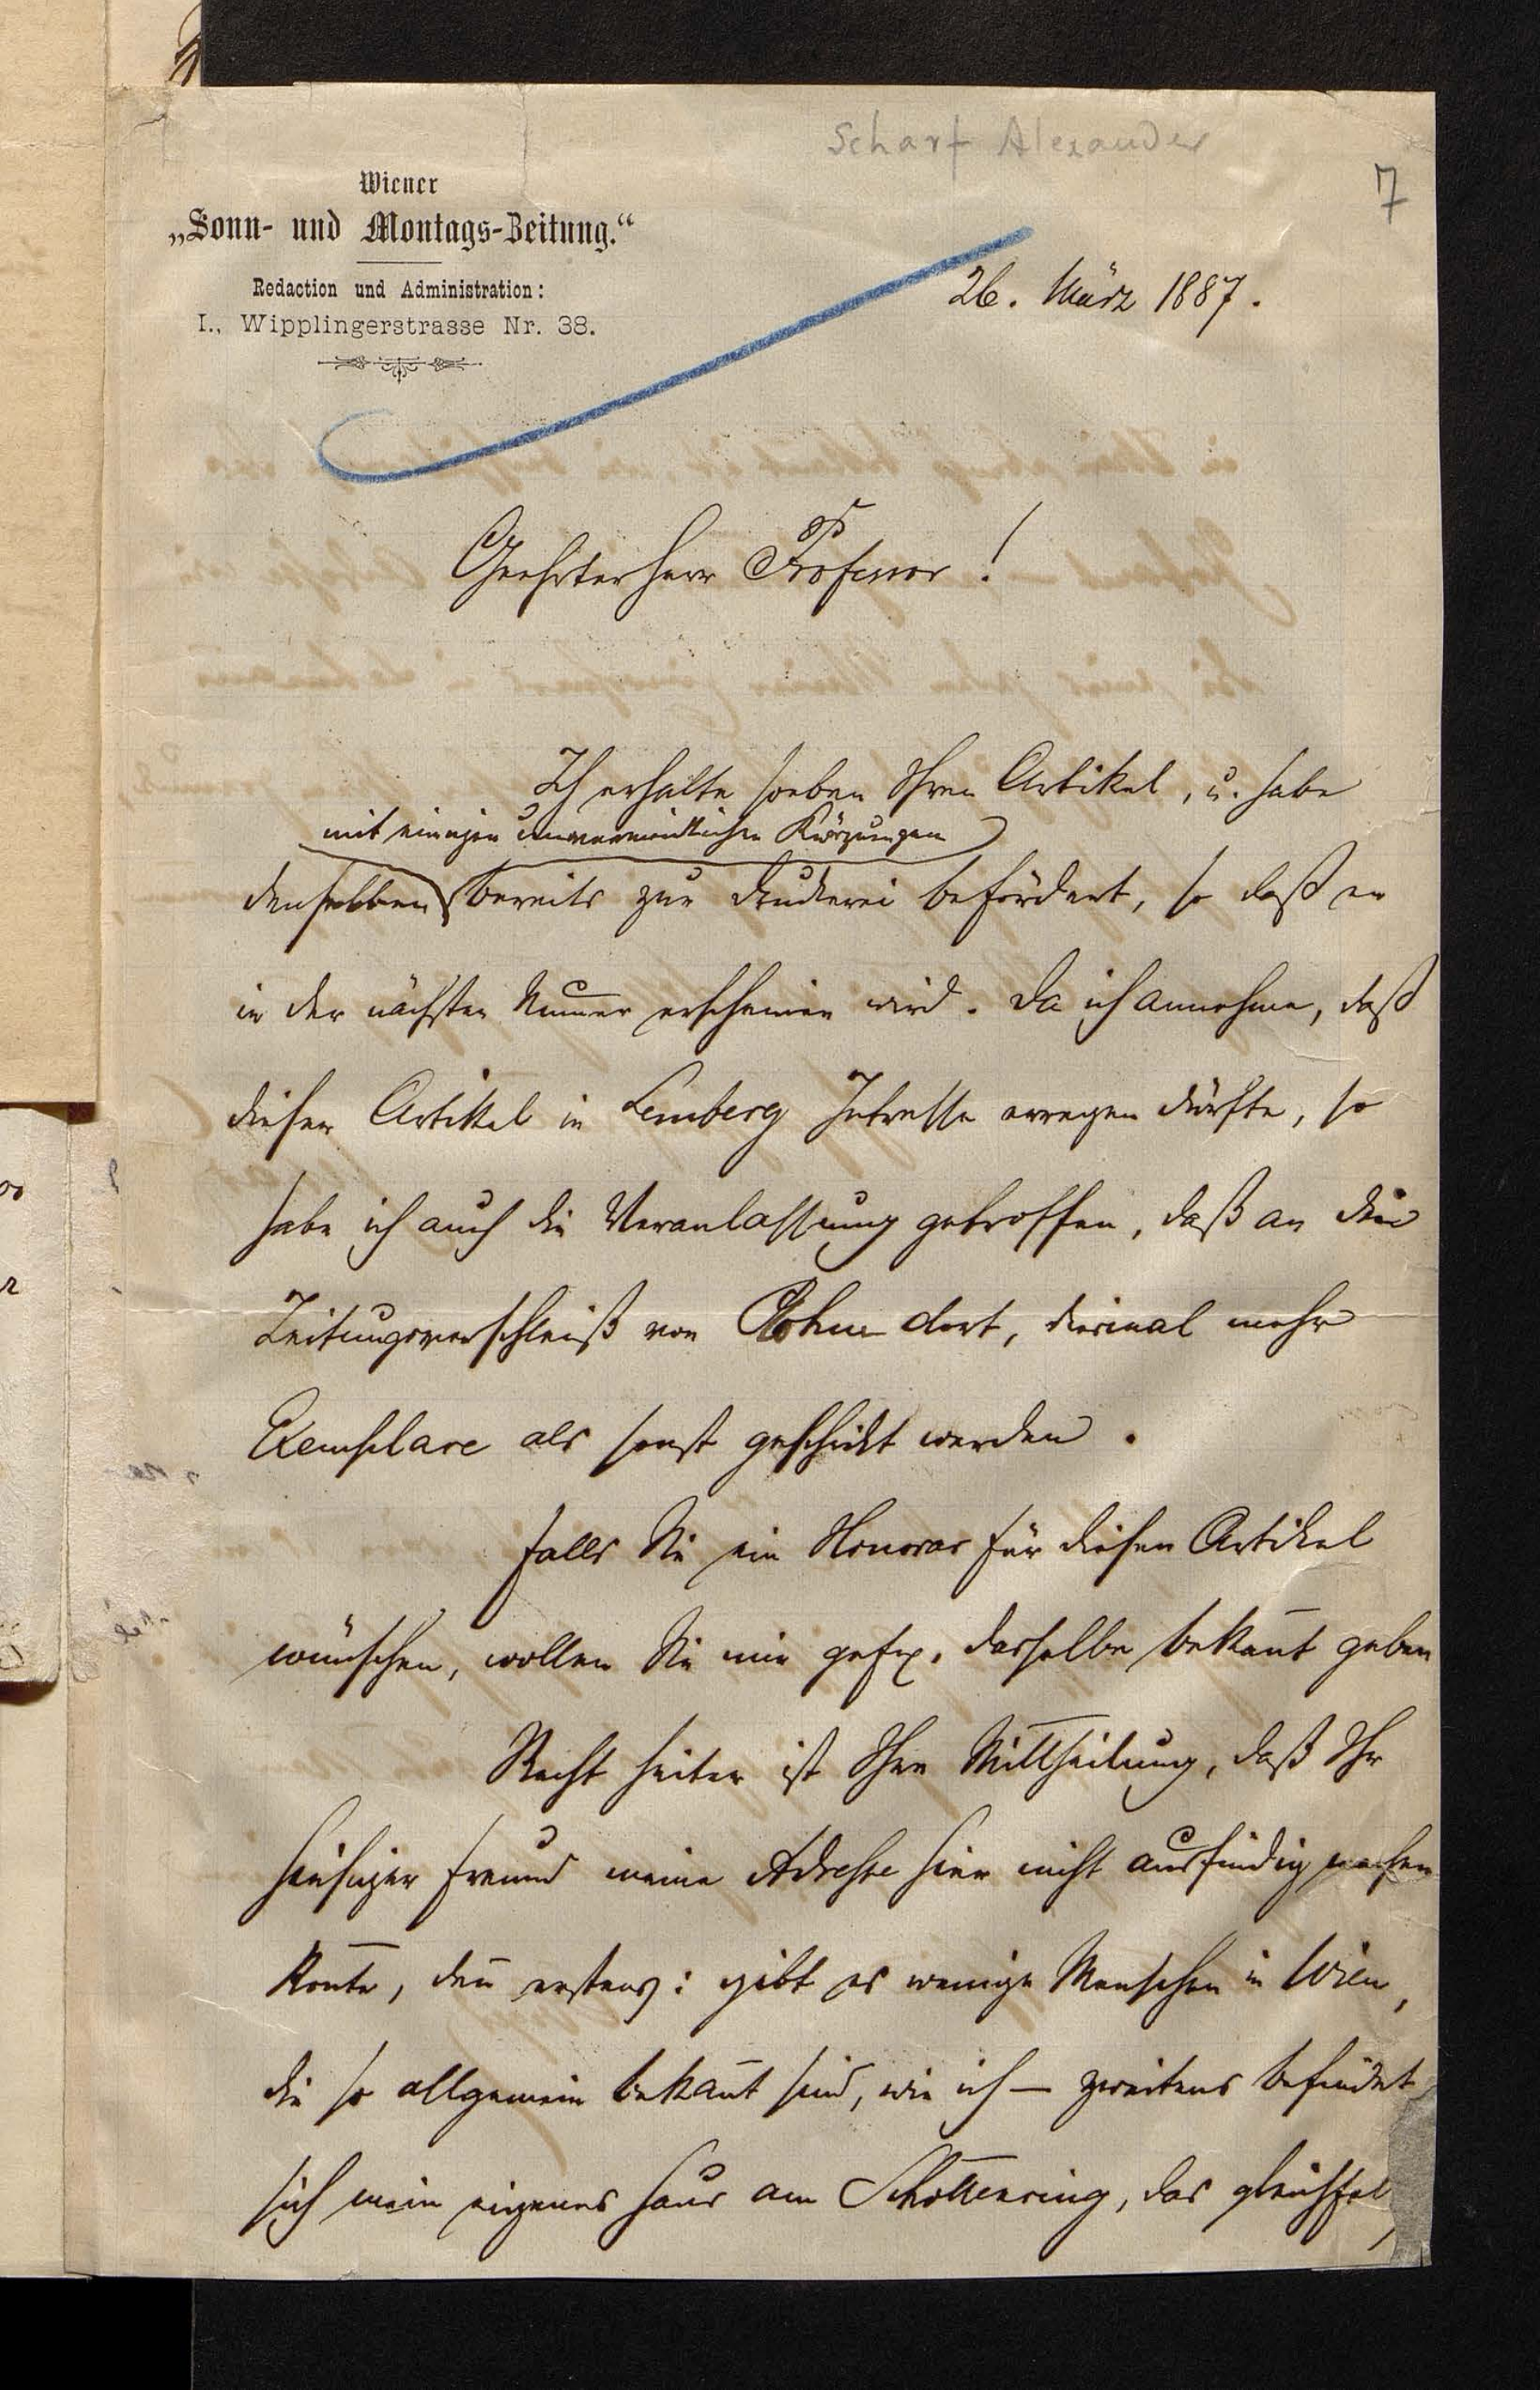 Scharf Alexander
7
Wiener
„Sonn- und Montags-Zeitung.“
Redaction und Administration:
I., Wipplingerstrasse Nr. 38.
26. März 1887.
Geehrter Herr Professor!
Ich erhalte soeben Ihren Artikel, u. habe
mit einigen unvermeidlichen Kürzungen
denselben bereits zur Druckerei befördert, so daß er
in der nächsten Numer erscheinen wird. Da ich annehme, daß
dieser Artikel in Lemberg Intresse erregen dürfte, so
habe ich auch die Veranlassung getroffen, daß an die
Zeitungsverschleiß von dort, diesmal mehr
Exemplare als sonst geschickt werden.
Falls Sie ein Honorar für diesen Artikel
wünschen, wollen Sie mir gef. dasselbe bekan̄t geben
Recht heiter ist Ihre Mittheilung, daß Ihr
hiesiger Freund meine Adresse hier nicht ausfindig machen
kon̄te, den̄ erstens: gibt es wenige Menschen in Wien,
die so allgemein bekan̄t sind, wie ich — zweitens befindet
sich mein eigenes Haus am Schottenring, das gleichfal